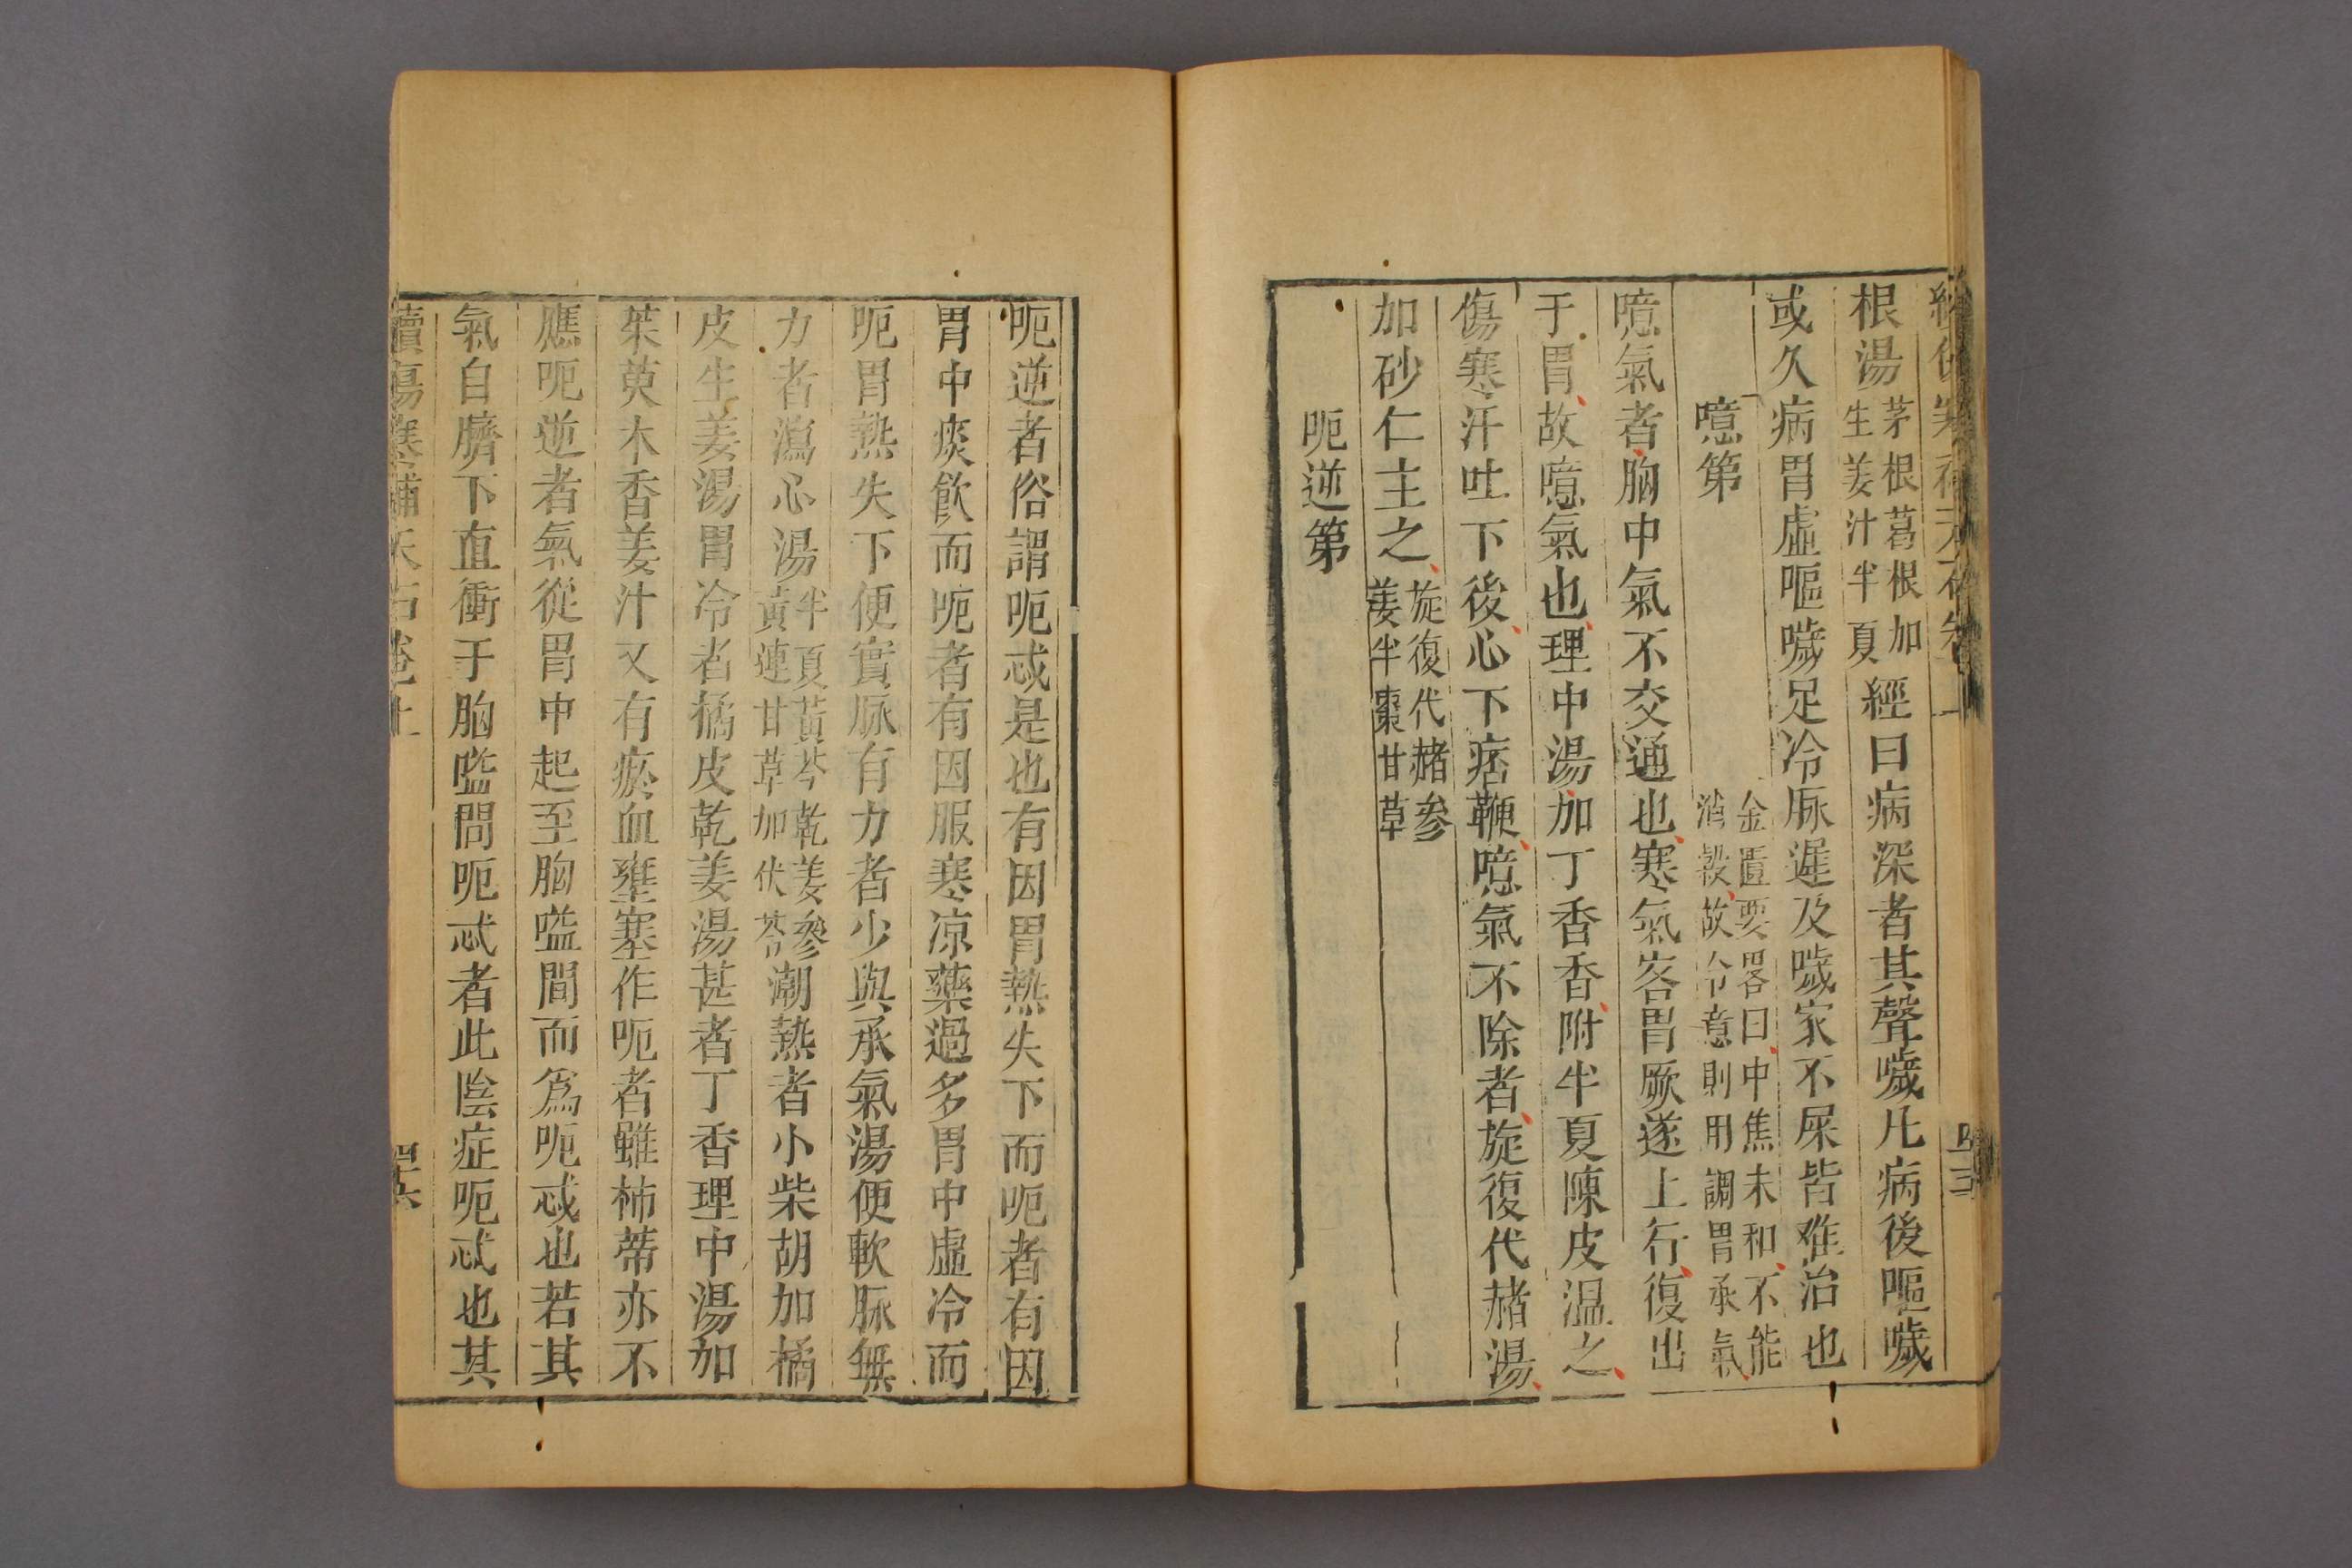 根湯茅根葛根加生姜汁半夏經曰病深者其聲噦凡病後嘔噦
或久病胃虛嘔噦足冷脉遲及噦家不屎皆难治也
噫第金匱要畧曰中焦未和不能消穀故令意則用調胃承氣
噫氣者胸中氣不交通也寒氣客胃厥遂上行復出
于胃故噫氣也理中湯加丁香香附半夏陳皮溫之
傷寒汗吐下後心下痞鞭噫氣不除者旋復代赭湯
加砂仁主之旋復代赭參姜半棗甘草
呃逆第
呃逆者俗謂呃忒是也有因胃熱失下而呃者有因
胃中痰飲而呃者有因服寒凉藥過多胃中虛冷而
呃胃熱失下便實脉有力者少與承氣湯便軟脉無
力者瀉心湯半夏黃芩乾姜參黃連甘草加伏苓潮熱者小柴胡加橘
皮生姜湯胃冷者橘皮乾姜湯甚者丁香理中湯加
茱萸木香姜汁又有瘀血壅塞作呃者雖柿蒂亦不
應呃逆者氣從胃中起至胸嗌間而爲呃忒也若其
氣自臍下直衝于胸嗌間呃忒者此陰症呃忒也其
讀傷寒補天石卷上